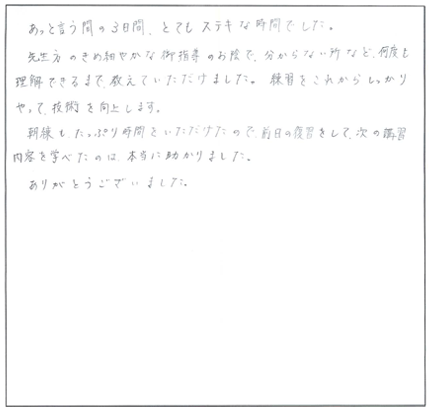 あっと言う間の3日間、とてもステキな時間でした。
先生方のきめ細やかな御指導のお陰で、分からない所など、何度も
理解できるまで、教えていただけました。練習をこれからしっかり
やって、技術を向上します。
朝練もたっぷり時間をいただけたので、前日の復習をして、次の講習
内容を学べたのは、本当に助かりました。
ありがとうございました。